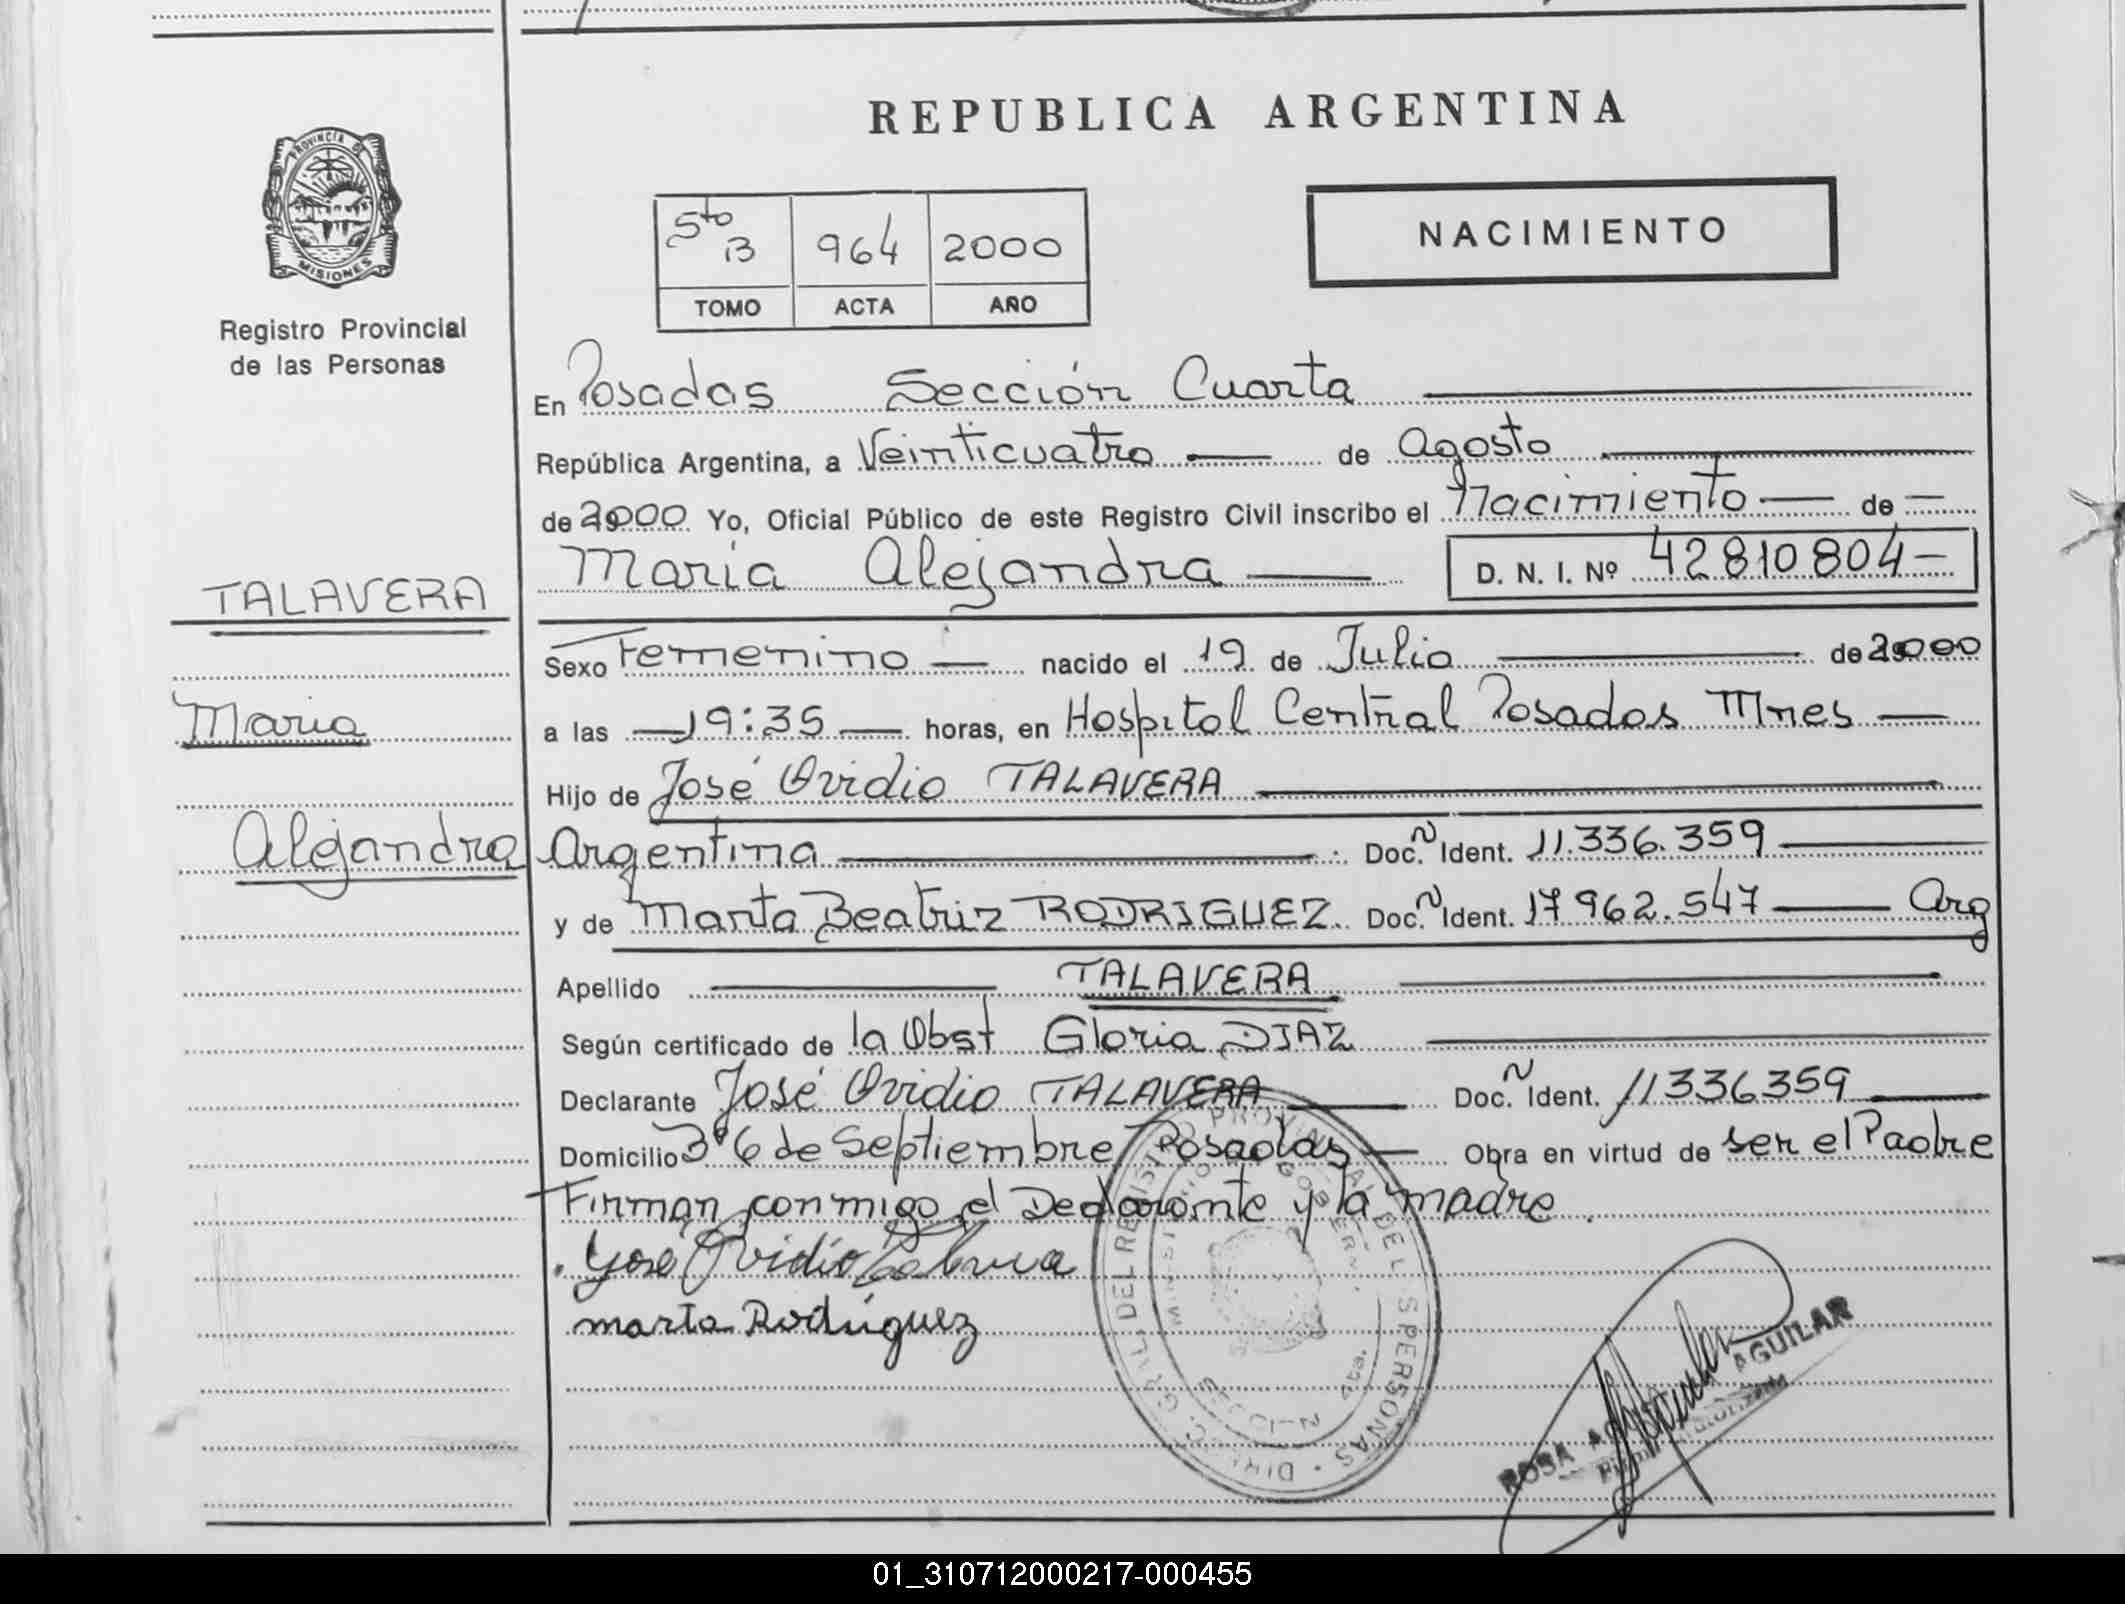 REPUBLICA ARGENTINA
PROVINCIA DE
MISIONES
Registro Provincial
de las Personas
5to B 964 2000
TOMO ACTA AÑO
NACIMIENTO
En Posadas Sección Cuarta
República Argentina, a Veinticuatro de Agosto
de 2000 Yo, Oficial Público de este Registro Civil inscribo el Nacimiento de
Maria Alejandra D. N. I. Nº 42810804
TALAVERA
Maria
Alejandra
Sexo Femenino nacido el 19 de Julio de 2000
a las 19:35 horas, en Hospital Central Posadas Mnes
Hijo de José Ovidio TALAVERA
Argentina Doc. N Ident. 11.336.359
y de Marta Beatriz RODRIGUEZ Doc. N Ident. 17962.547 Arg
Apellido TALAVERA
Según certificado de la Obst Gloria DIAZ
Declarante José Ovidio TALAVERA Doc. N Ident. 11336359
Domicilio 3 6 de Septiembre Posadas Obra en virtud de ser el Padre
Firman conmigo el Declarante y la madre.
José Ovidio Talavera
marta Rodríguez
DIREC. GRAL. DEL REGISTRO PROVINCIAL DE LAS PERSONAS
MINISTERIO GOBIERNO
ROSA AGUILAR
01_310712000217-000455